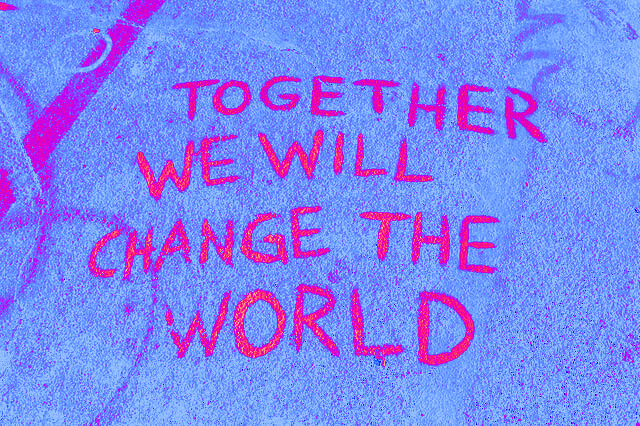 TOGETHER
WE WILL
CHANGE THE
WORLD